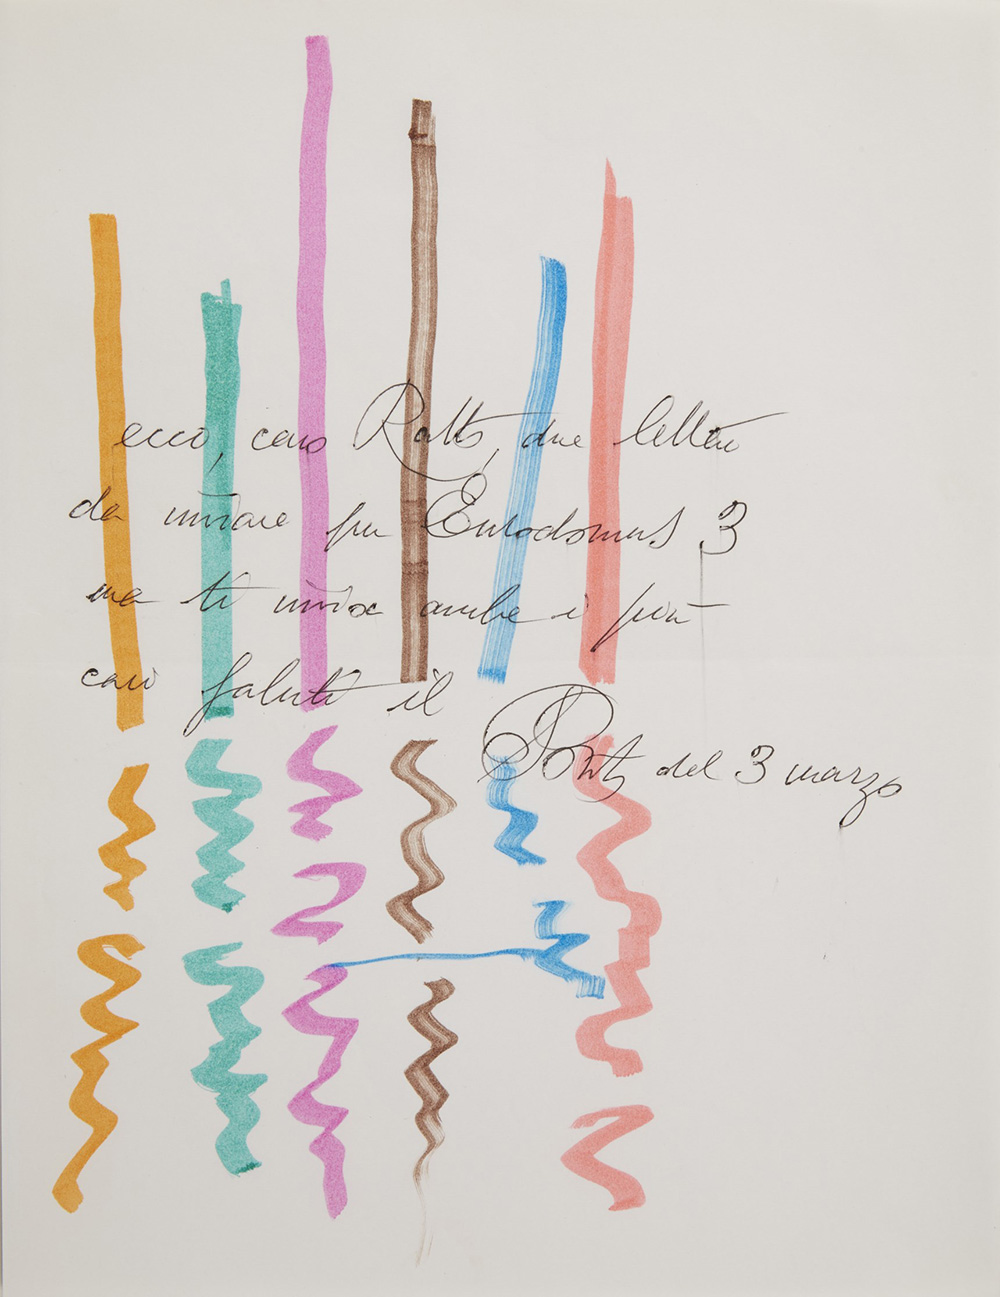 ecco, caro Ratto, due lettere
da unire per Eurodomus 3
ma ti unisco anche i più
cari saluti il
Ponti del 3 marzo